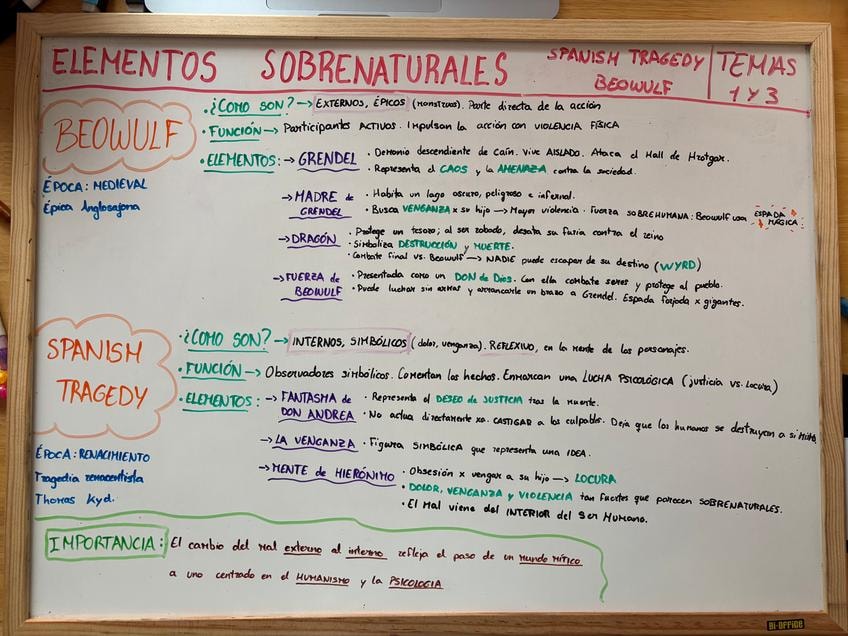 ELEMENTOS SOBRENATURALES
SPANISH TRAGEDY
BEOWULF
TEMAS
1 Y 3
BEOWULF
ÉPOCA: MEDIEVAL
Épica Anglosajona
· ¿COMO SON? → EXTERNOS, ÉPICOS (monstruos). Parte directa de la acción
· FUNCIÓN → Participantes ACTIVOS. Impulsan la acción con VIOLENCIA FÍSICA
· ELEMENTOS: → GRENDEL · Demonio descendiente de Caín. Vive AISLADO. Ataca el Hall de Hrotgar.
· Representa el CAOS y la AMENAZA contra la sociedad.
→ MADRE de GRENDEL · Habita un lago oscuro, peligroso e infernal.
· Busca VENGANZA x su hijo → Mayor violencia. Fuerza SOBREHUMANA: Beowulf usa ESPADA MÁGICA
→ DRAGÓN · Protege un tesoro; al ser robado, desata su furia contra el reino
· Simboliza DESTRUCCIÓN y MUERTE.
· Combate final vs. Beowulf → NADIE puede escapar de su destino (WYRD)
→ FUERZA de BEOWULF · Presentada como un DON de Dios. Con ella combate seres y protege al pueblo.
· Puede luchar sin armas y arrancarle un brazo a Grendel. Espada forjada x gigantes.
SPANISH
TRAGEDY
ÉPOCA: RENACIMIENTO
Tragedia renacentista
Thomas Kyd.
· ¿COMO SON? → INTERNOS, SIMBÓLICOS (dolor, venganza). REFLEXIVO, en la mente de los personajes.
· FUNCIÓN → Observadores simbólicos. Comentan los hechos. Enmarcan una LUCHA PSICOLÓGICA (justicia vs. Locura)
· ELEMENTOS: → FANTASMA de DON ANDREA · Representa el DESEO de JUSTICIA tras la muerte.
· No actua directamente xa. CASTIGAR a los culpables. Deja que los humanos se destruyan a si mismos
→ LA VENGANZA · Figura SIMBÓLICA que representa una IDEA.
→ MENTE de HIERÓNIMO · Obsesión x vengar a su hijo → LOCURA
· DOLOR, VENGANZA y VIOLENCIA tan fuertes que parecen SOBRENATURALES.
· El Mal viene del INTERIOR del Ser Humano.
IMPORTANCIA: El cambio del mal externo al interno refleja el paso de un mundo mítico
a uno centrado en el HUMANISMO y la PSICOLOGIA
BI-OFFICE